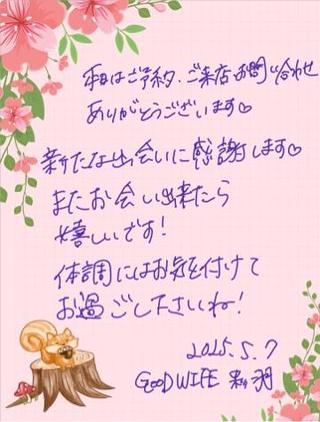 本日はご予約、ご来店お問い合わせ
ありがとうございます♡
新たな出会いに感謝します♡
またお会い出来たら
嬉しいです!
体調にはお気を付けて
お過ごし下さいね!
2025.5.7
GOODWIFE